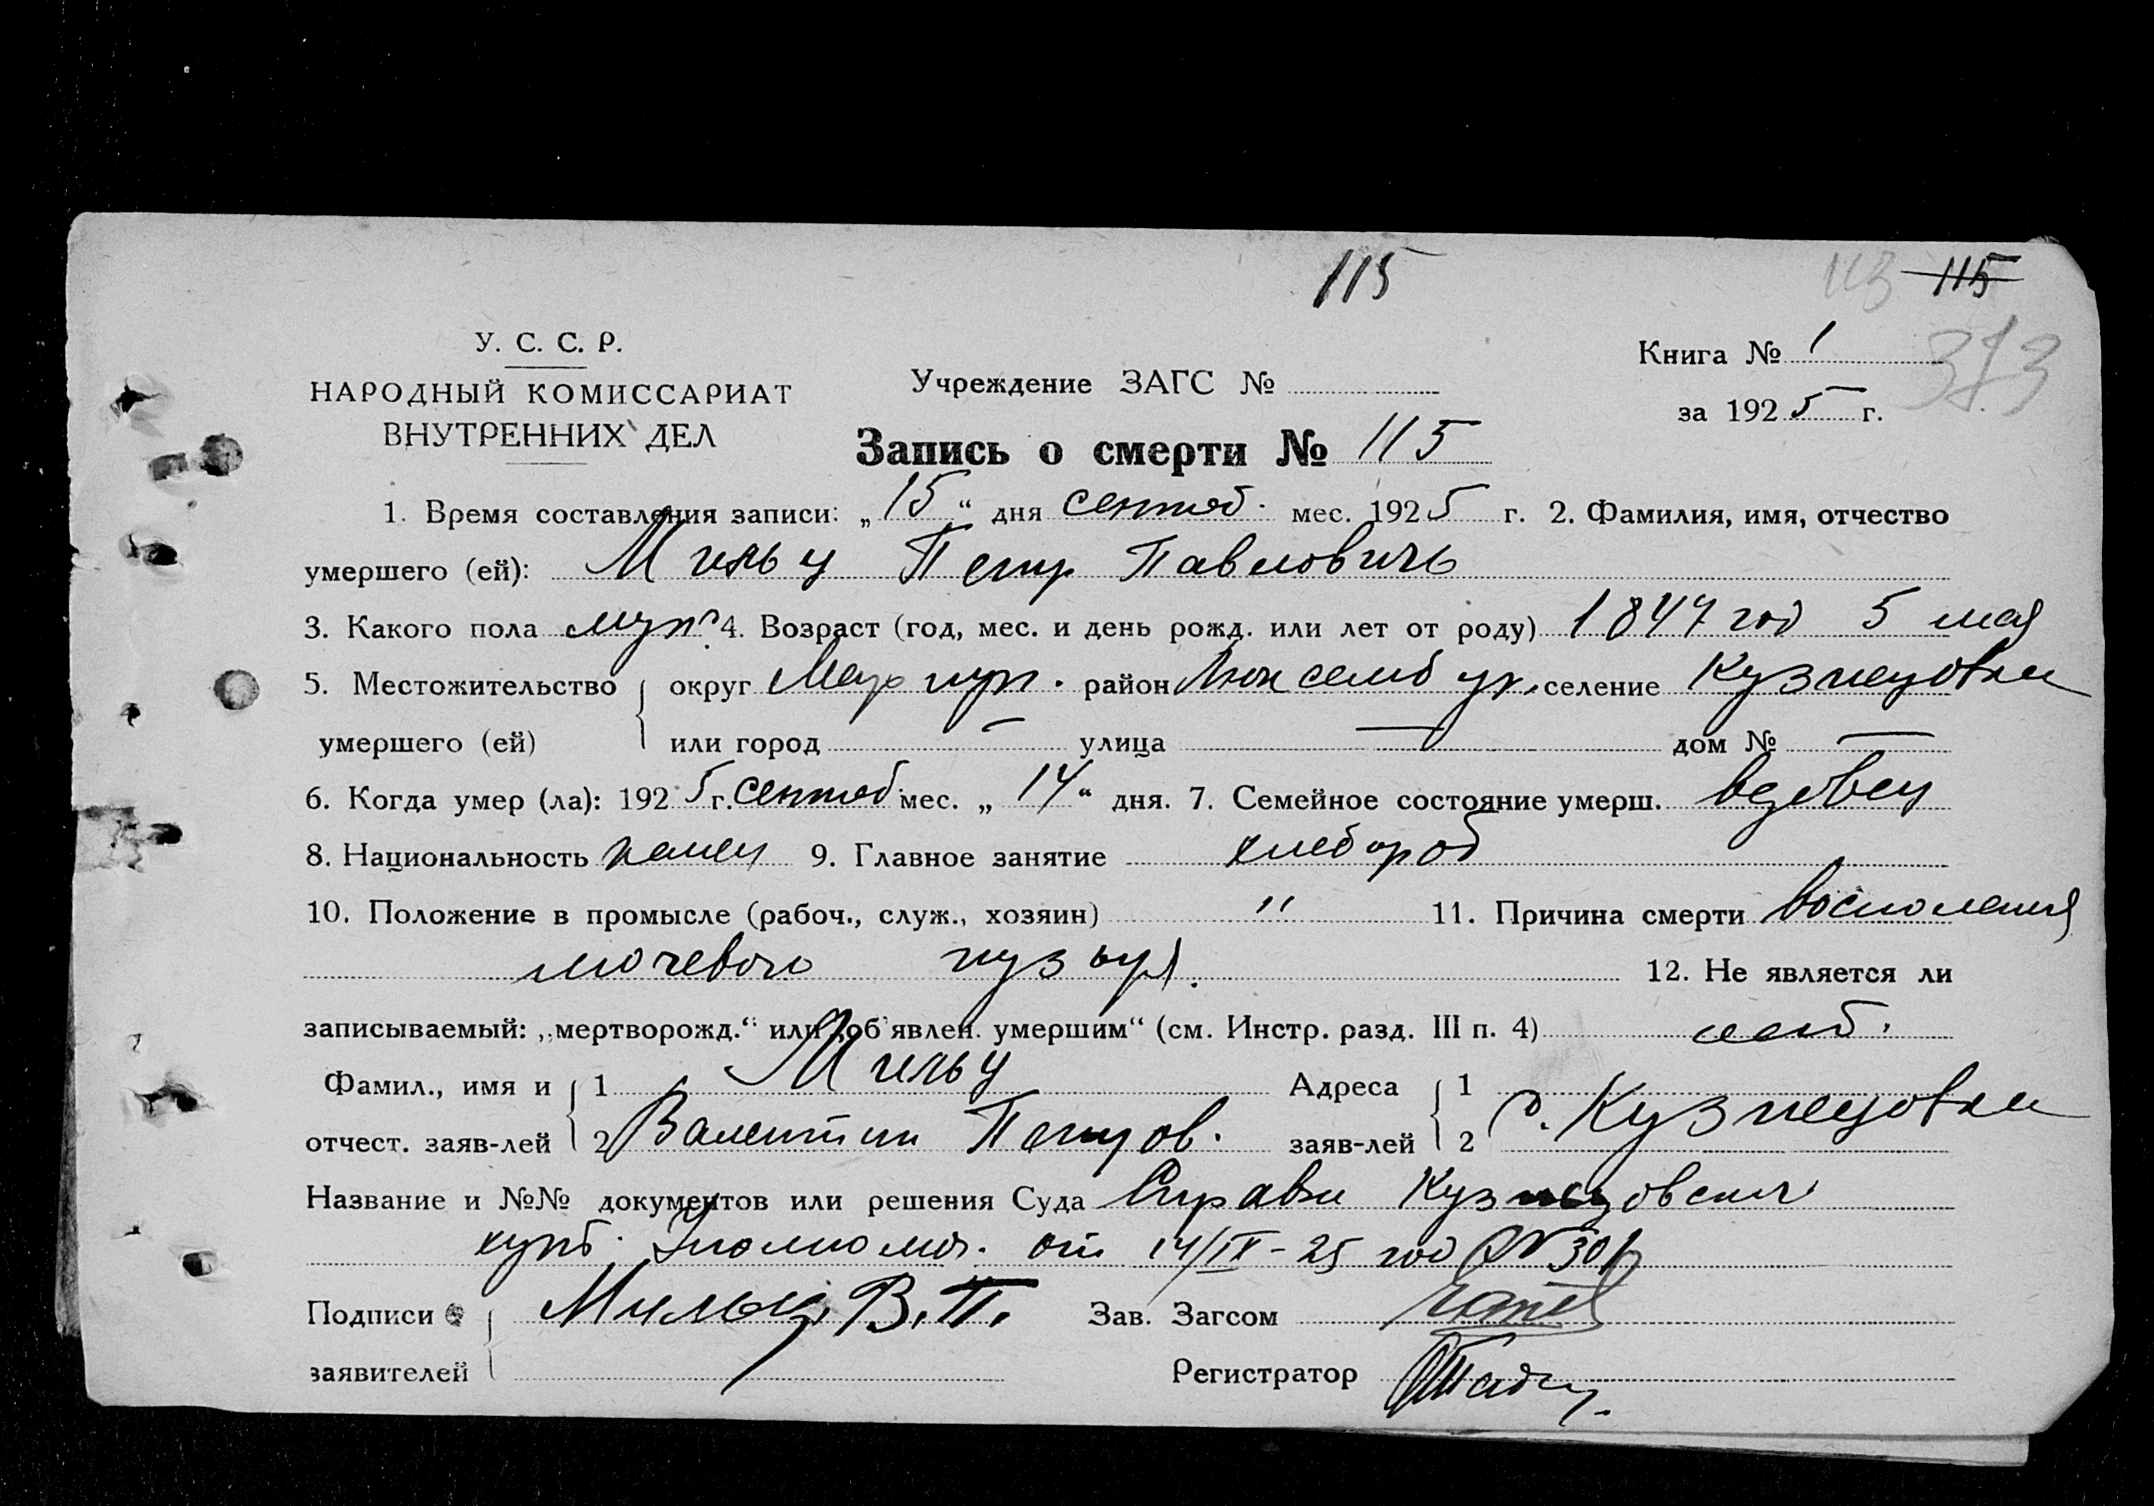 115
113 115
373
У. С. С. Р.
НАРОДНЫЙ КОМИССАРИАТ
ВНУТРЕННИХ ДЕЛ
Учреждение ЗАГС №
Книга № 1
за 1925 г.
Запись о смерти № 115
1. Время составления записи: „15“ дня сентяб. мес. 1925 г. 2. Фамилия, имя, отчество
умершего (ей): Мильц Петр Павловичь
3. Какого пола муж. 4. Возраст (год, мес. и день рожд. или лет от роду) 1847 год 5 мая
5. Местожительство округ Мариуп. район Люксембург. селение Кузнецовка
умершего (ей) или город — улица — дом № —
6. Когда умер (ла): 1925 г. сентяб. мес. „14“ дня. 7. Семейное состояние умерш. вдовец
8. Национальность немец 9. Главное занятие хлебороб
10. Положение в промысле (рабоч., служ., хозяин) " 11. Причина смерти восполения
мочевого пузыря. 12. Не является ли
записываемый: „мертворожд.“ или „об'явлен. умершим“ (см. Инстр. разд. III п. 4)
Фамил., имя и 1 Мильц Адреса 1
отчест. заяв-лей 2 Валентин Петров. заяв-лей 2 с. Кузнецовка
Название и №№ документов или решения Суда Справка Кузнецовский
от 14/IX-25 год № 301
Подписи Мильц, В. П. Зав. Загсом
заявителей Регистратор